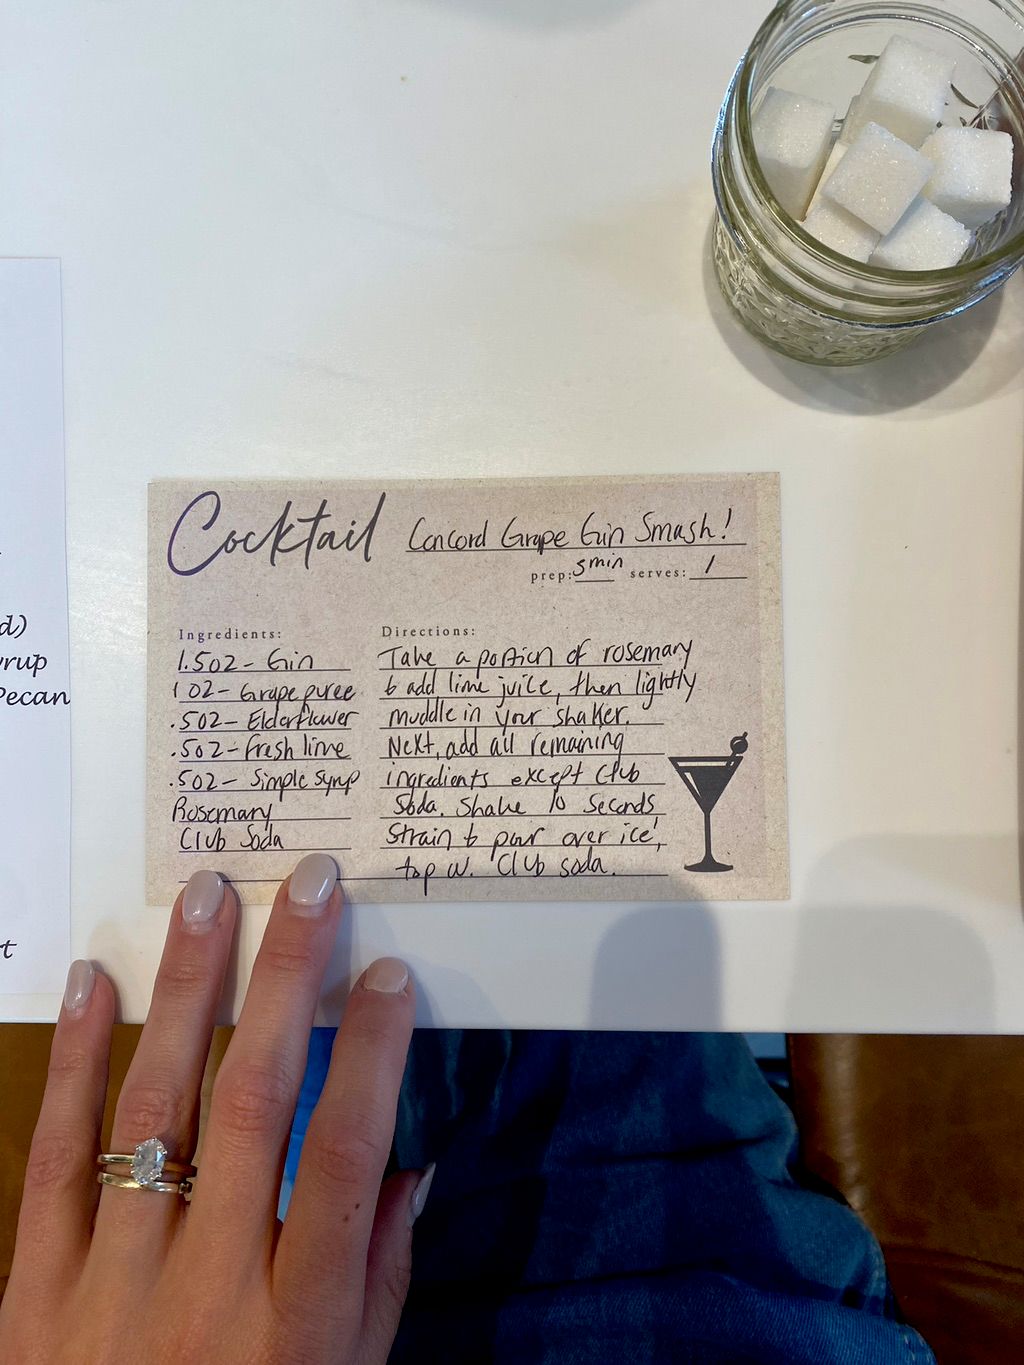 Cocktail Concord Grape Gin Smash!
prep: 5min serves: 1
Ingredients:
1.5oz - Gin
1 oz - Grape puree
.5oz - Elderflower
.5oz - Fresh lime
.5oz - Simple syrup
Rosemary
Club Soda
Directions:
Take a portion of rosemary
& add lime juice, then lightly
muddle in your shaker.
Next, add all remaining
ingredients except Club
Soda. Shake 10 seconds
Strain & pour over ice,
top w. Club soda.
d)
yrup
Pecan
t